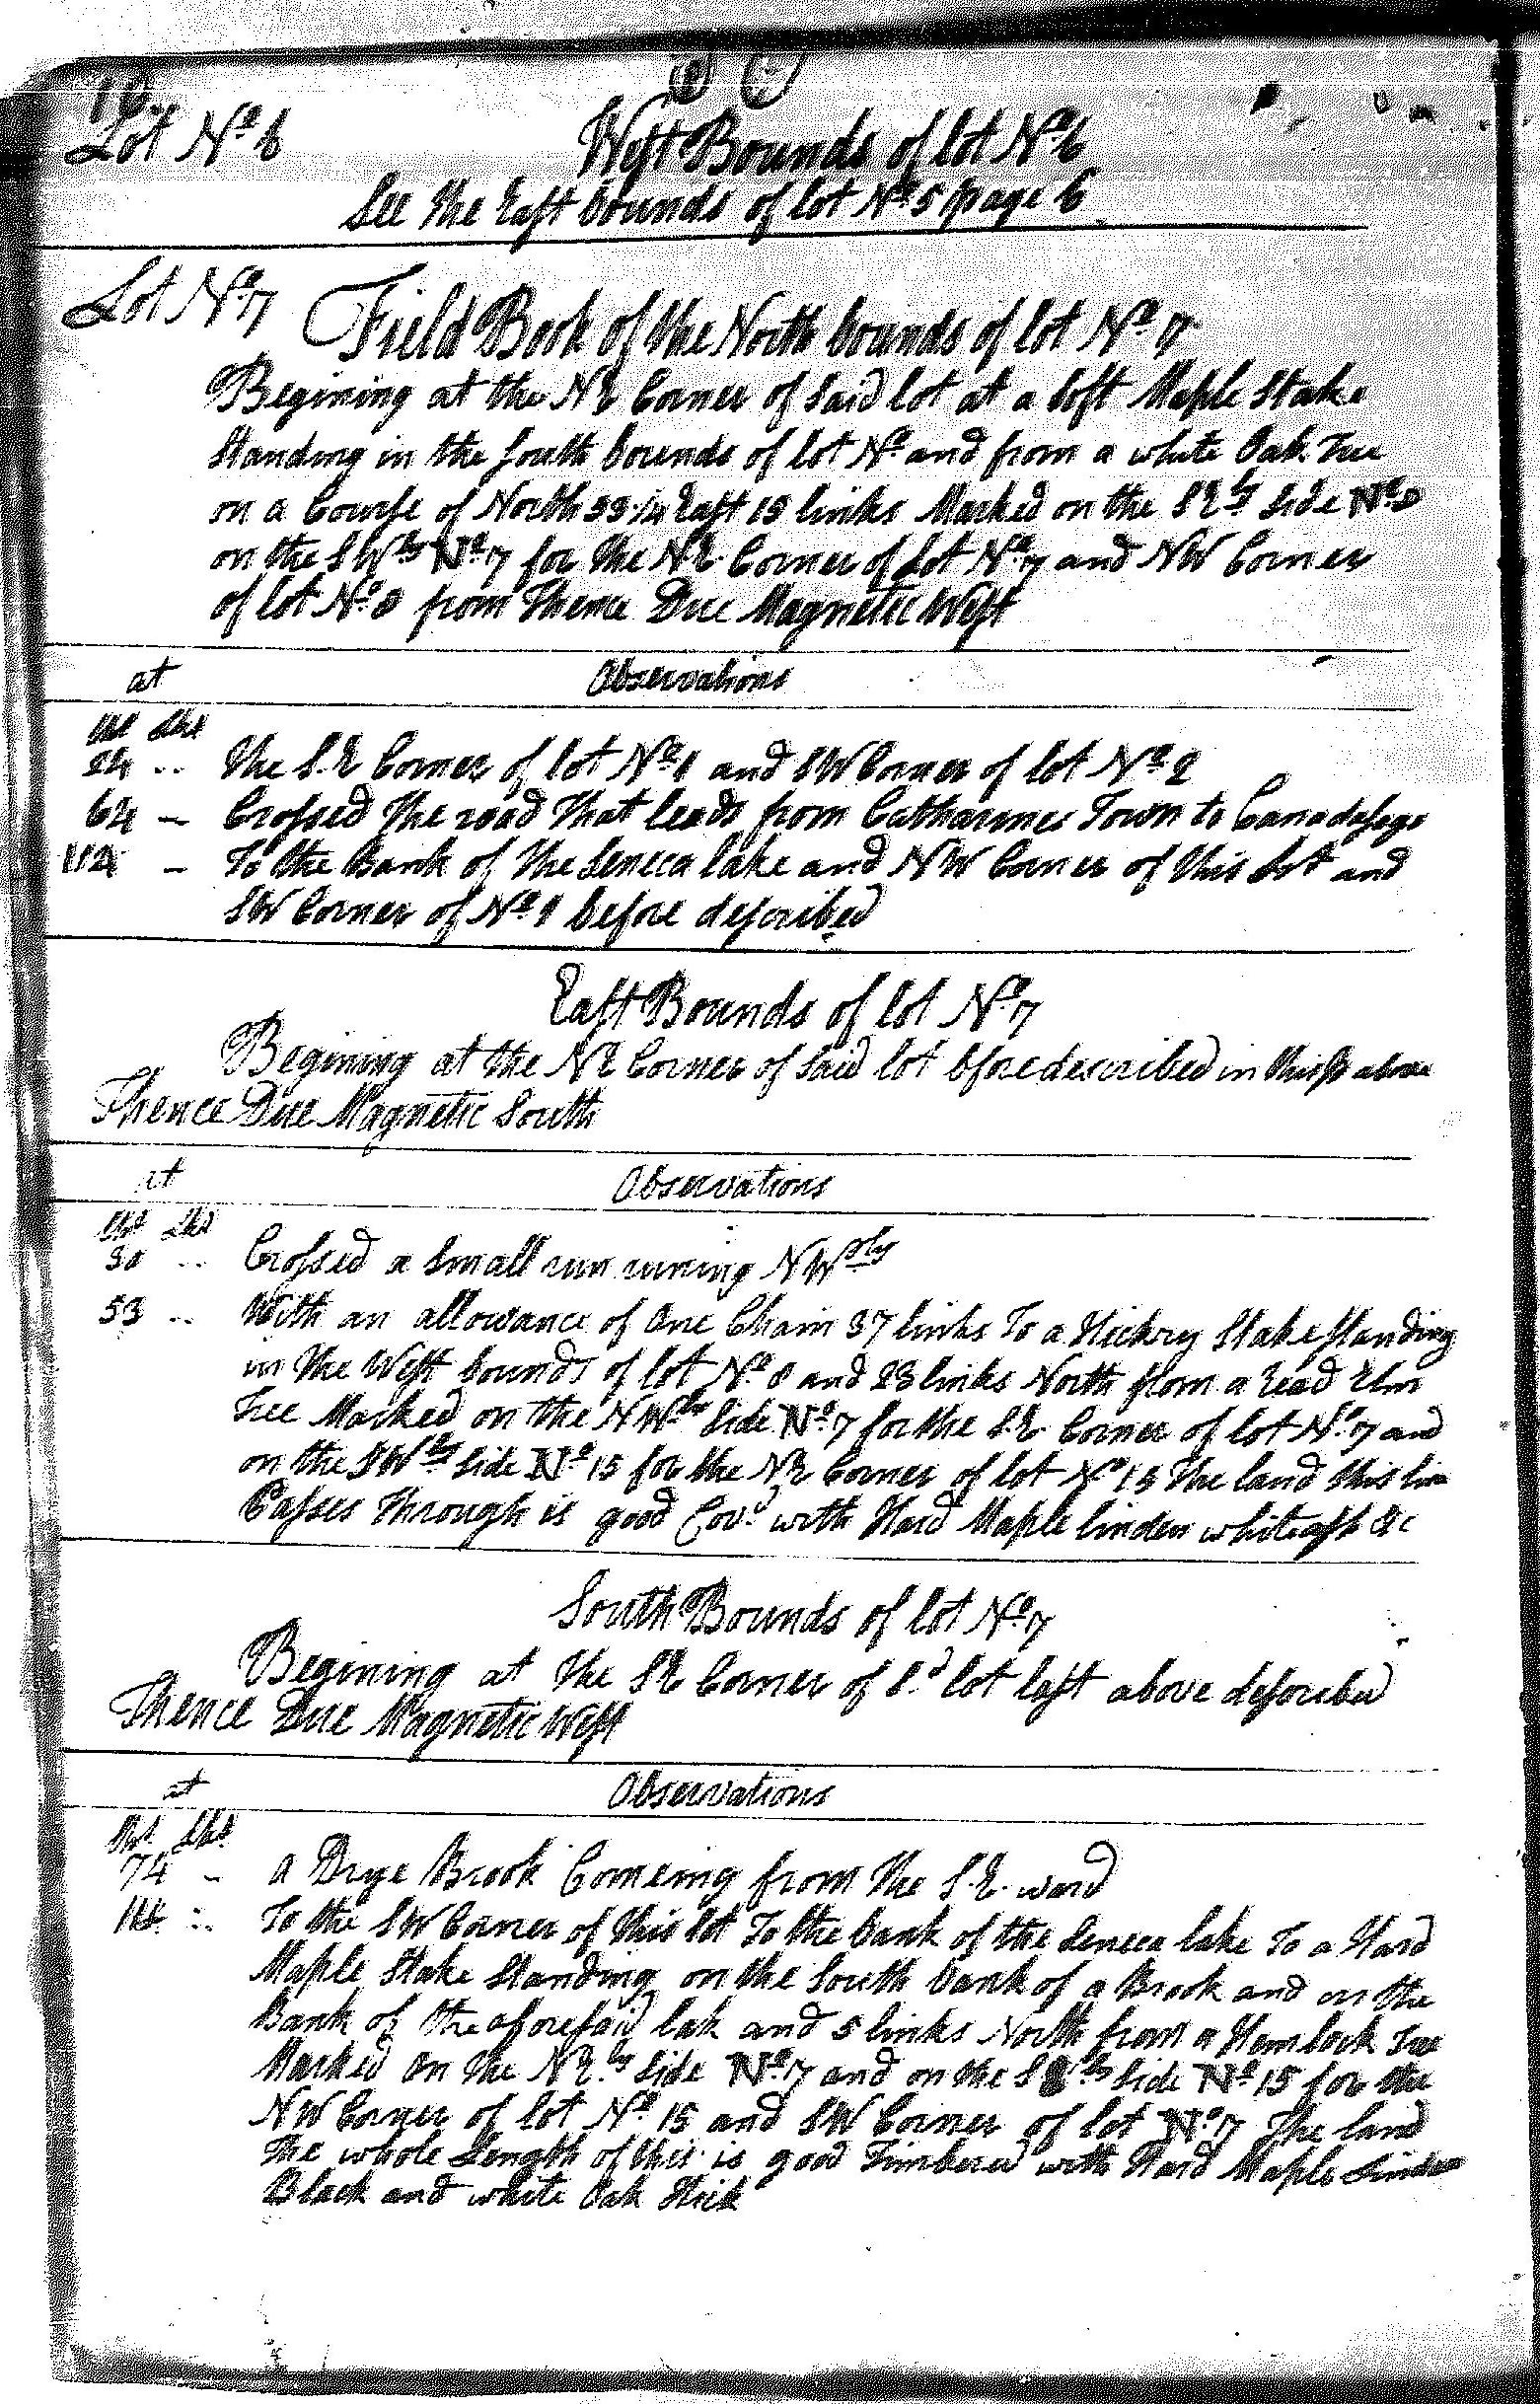 10
Lot Nº 6
West Bounds of lot Nº 6
See the East bounds of lot Nº 5 page 6
Lot Nº 7
Field Book of the North bounds of lot Nº 7
Begining at the NE Corner of Said lot at a Soft Maple Stake
Standing in the South bounds of lot Nº and from a white Oak Tree
on a Course of North East 19 links Marked on the SEly Side Nº 8
on the SWly Nº 7 for the NE Corner of Lot Nº 7 and NW Corner
of lot Nº 8 from Thence Due Magnetic West
at
Observations
Chs Lks
24 .. The S.E Corner of lot Nº 1 and SW Corner of lot Nº 2
64 – Crossed the road that leads from Catharines Town to Canadasaga
112 – To the Bank of the Seneca lake and NW Corner of this Lot and
SW Corner of Nº 1 before described
East Bounds of lot Nº 7
Begining at the NE Corner of Said lot bfore described in this p above
Thence Due Magnetic South
at
Observations
Chs Lks
30 .. Crossed a Small run runing NWrly
53 .. With an allowance of One Chain 37 links To a Hickry Stake Standing
in the West bounds of lot Nº 8 and 23 links North from a read Elm
Tree Marked on the NWly Side Nº 7 for the S.E. Corner of lot Nº 7 and
on the SWly Side Nº 15 for the NE Corner of lot Nº 15 The land this line
Passes through is good Covd with Hard Maple linden white ash &c
South Bounds of lot Nº 7
Begining at the SE Corner of Sd lot last above described
Thence Due Magnetic West
at
Observations
Chs Lks
74 – a Drye Brook Comeing from the S.E. ward
114 .. To the SW Corner of this lot To the bank of the Seneca lake To a Hard
Maple Stake Standing on the South bank of a Brook and on the
Bank of the aforesaid lak and 5 links North from a Hemlock Tree
Marked on the NEly Side Nº 7 and on the SEly Side Nº 15 for the
NW Corner of lot Nº 15 and SW Corner of lot Nº 7 The land
the whole Length of this is good Timbered with Hard Maple Linden
Black and white Oak